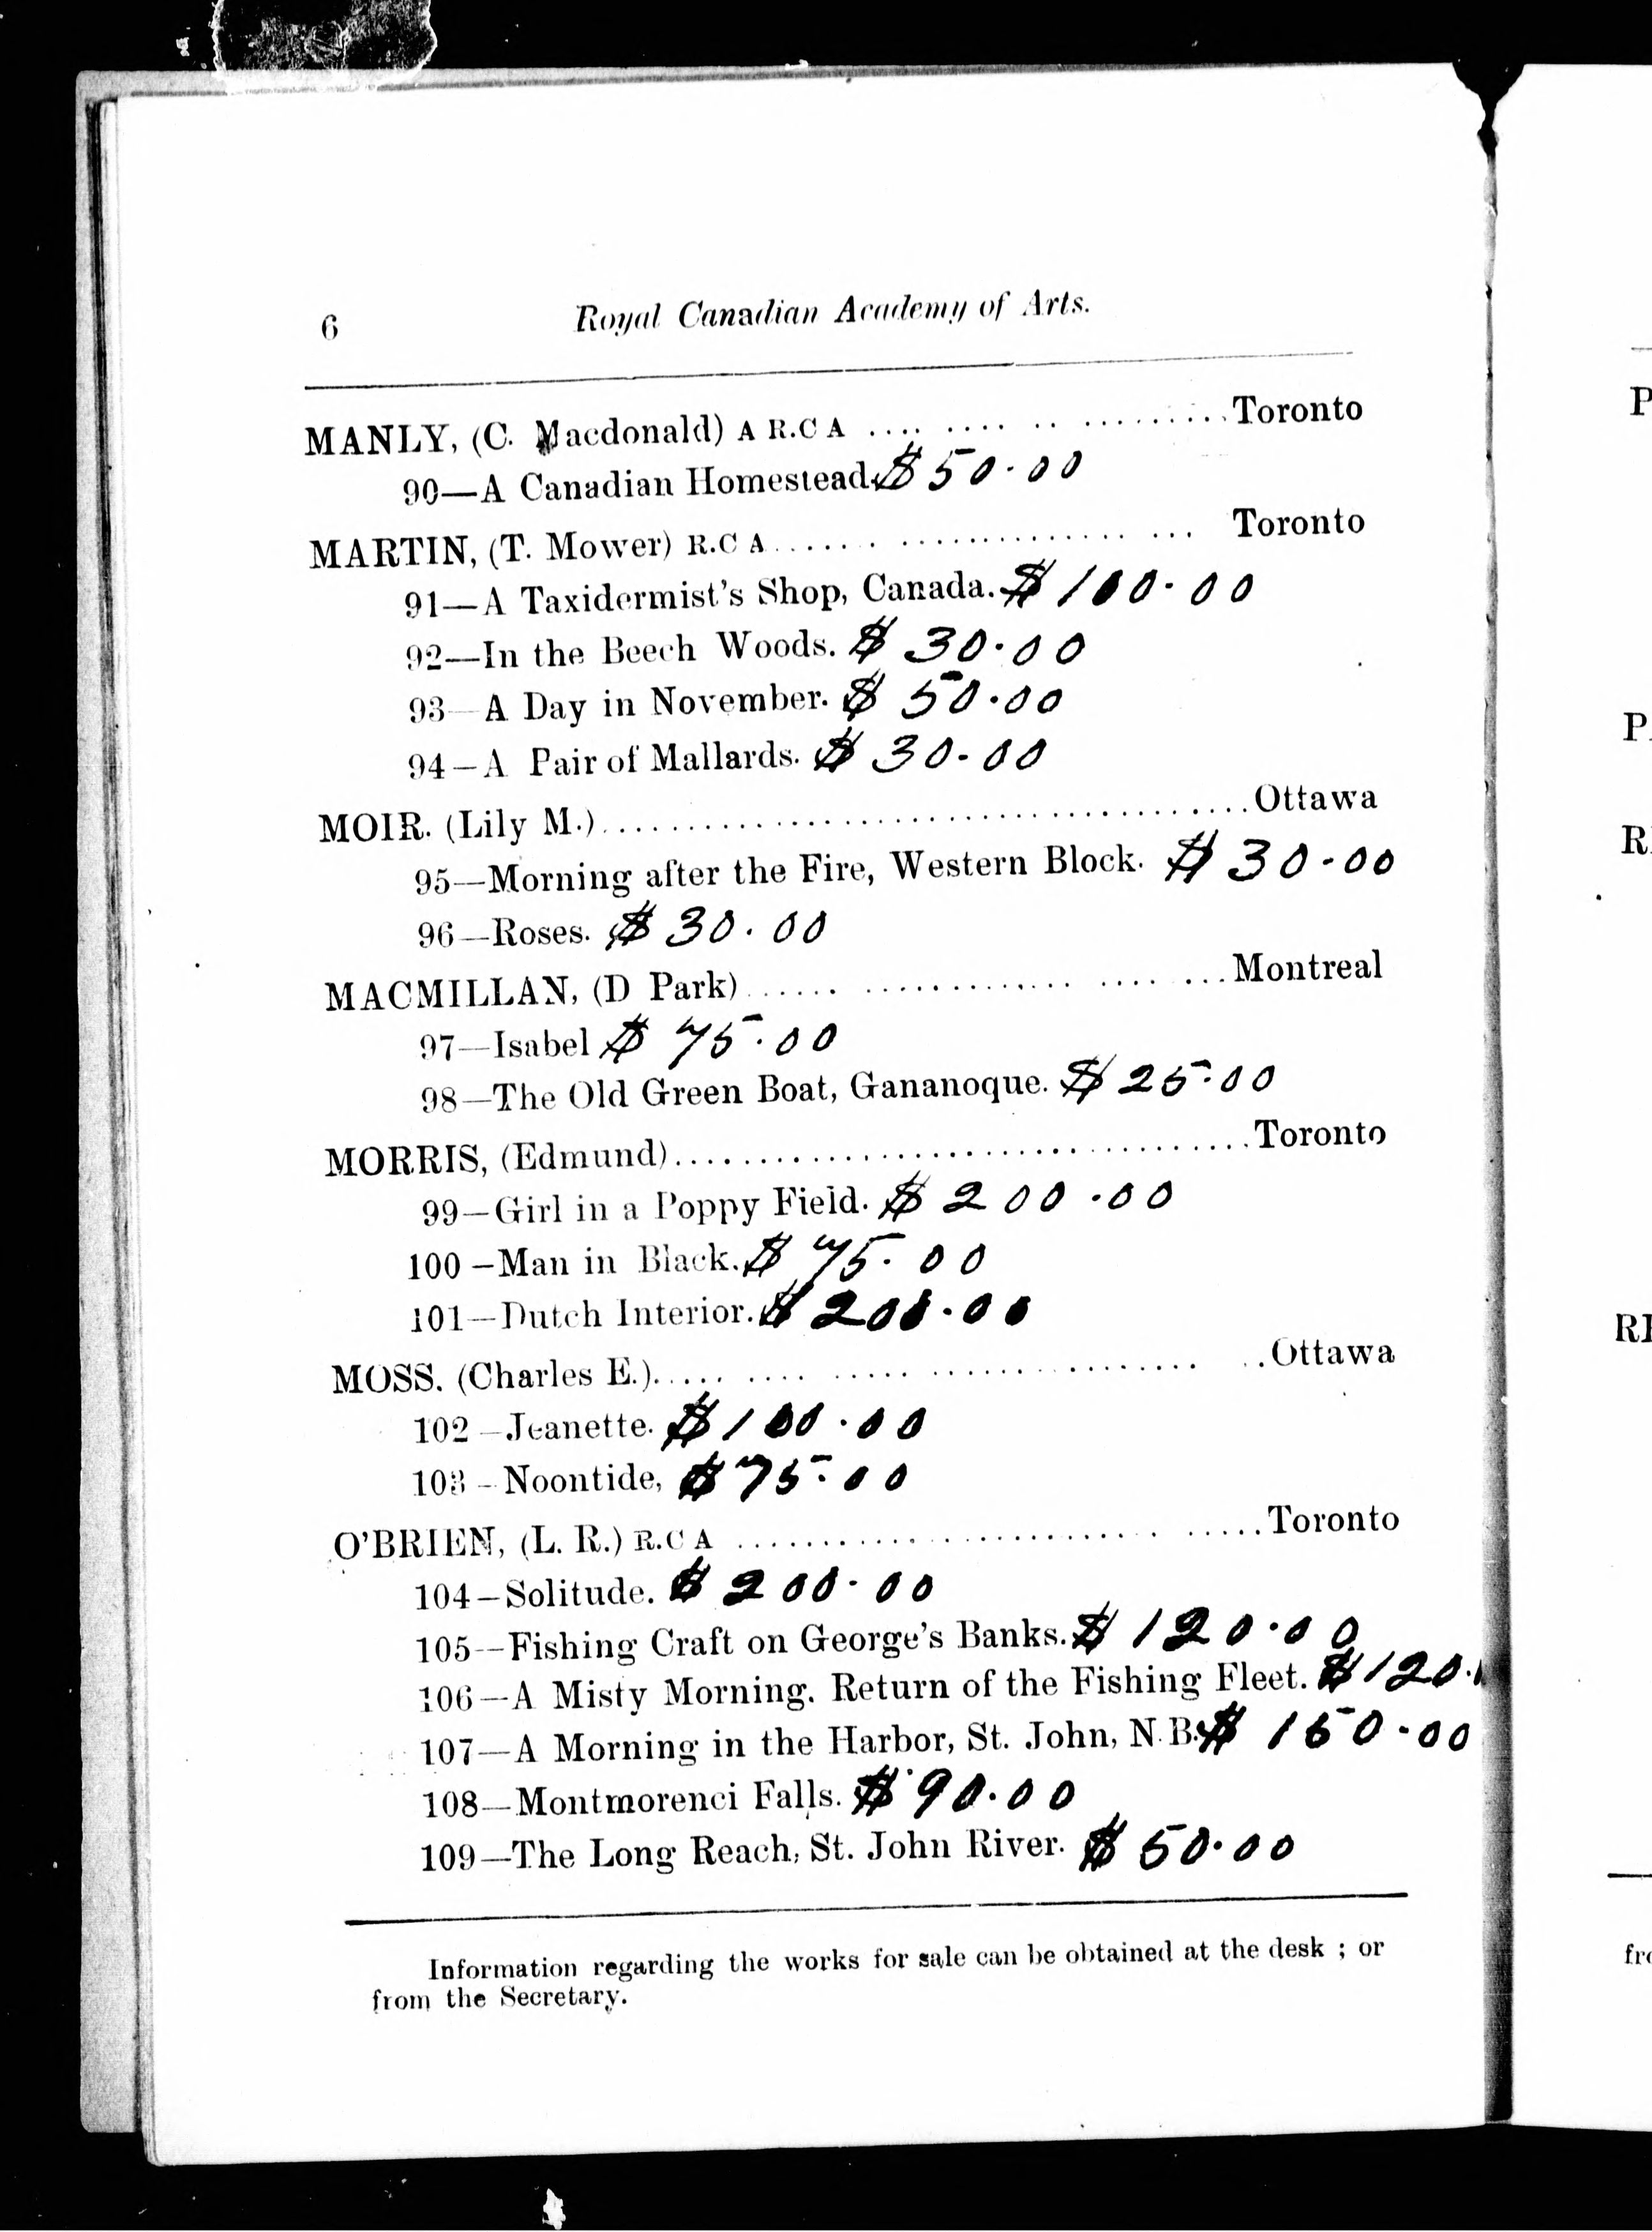 6 Royal Canadian Academy of Arts.
MANLY, (C. Macdonald) A R.C A .... .... .. ......... Toronto
90—A Canadian Homestead. $50.00
MARTIN, (T. Mower) R.C A...... . .............. ... Toronto
91—A Taxidermist's Shop, Canada. $100.00
92—In the Beech Woods. $30.00
93—A Day in November. $50.00
94—A Pair of Mallards. $30.00
MOIR. (Lily M.)........................................Ottawa
95—Morning after the Fire, Western Block. $30.00
96—Roses. $30.00
MACMILLAN, (D Park)...... ............. .... ...Montreal
97—Isabel $75.00
98—The Old Green Boat, Gananoque. $25.00
MORRIS, (Edmund)...................................Toronto
99—Girl in a Poppy Field. $200.00
100—Man in Black. $75.00
101—Dutch Interior. $200.00
MOSS. (Charles E.)..... .... ..... ................ ..Ottawa
102—Jeanette. $100.00
103—Noontide, $75.00
O'BRIEN, (L. R.) R.C A .......................... .....Toronto
104—Solitude. $200.00
105—Fishing Craft on George's Banks. $120.00
106—A Misty Morning. Return of the Fishing Fleet. $120.
107—A Morning in the Harbor, St. John, N.B. $150.00
108—Montmorenci Falls. $90.00
109—The Long Reach, St. John River. $50.00
Information regarding the works for sale can be obtained at the desk ; or
from the Secretary.
P
P
R
RI